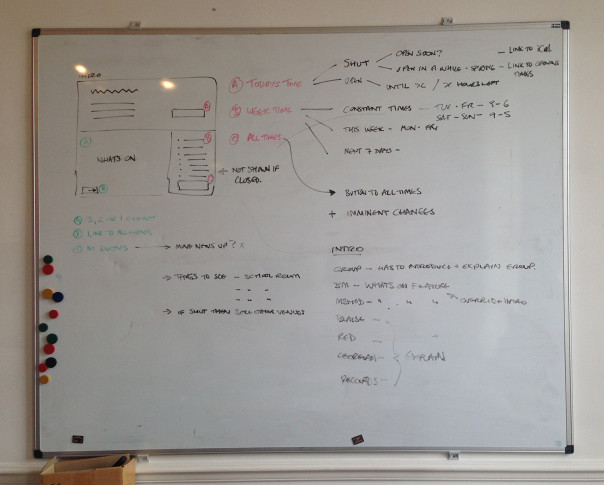 INTRO
WHATS ON
A TODAYS TIME
SHUT
OPEN SOON?
LINK TO iCal
OPEN IN A WHILE - SPRING - LINK TO OPENING TIMES
OPEN
UNTIL X / X HOURS LEFT
B WEEK TIME
CONSTANT TIMES - TUE - FRI - 8-6
SAT - SUN - 9-5
THIS WEEK - MON - FRI
NEXT 7 DAYS -
C ALL TIMES
+ NOT SHOWN IF CLOSED.
BUTTON TO ALL TIMES
+ IMMINENT CHANGES
EVENT
LINK TO ALL
→ MAKE NEWS UP? X
→ THINGS TO SEE - SCHOOL ROOM
→ IF SHUT THEN STILL OTHER VENUES
INTRO
GROUP - HAS TO INTRODUCE + EXPLAIN GROUP.
WHATS ON FEATURE
RED
GEORGIAN
EXPLAIN
RECORDS -